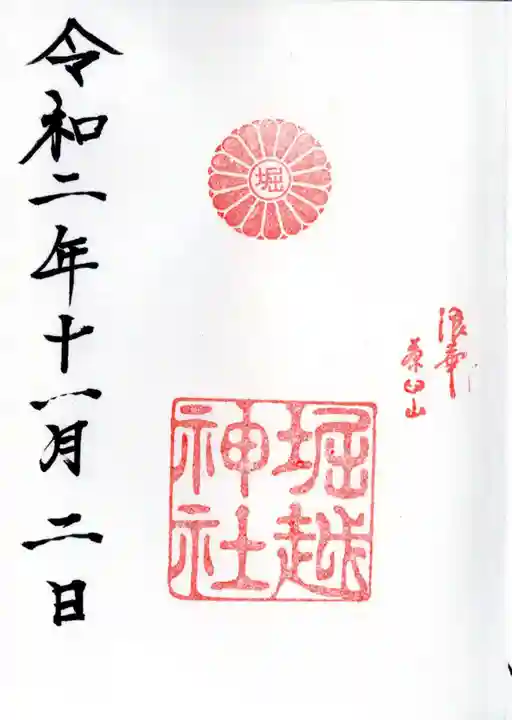 浪華
茶臼山
堀
堀越
神社
令和二年十一月二日